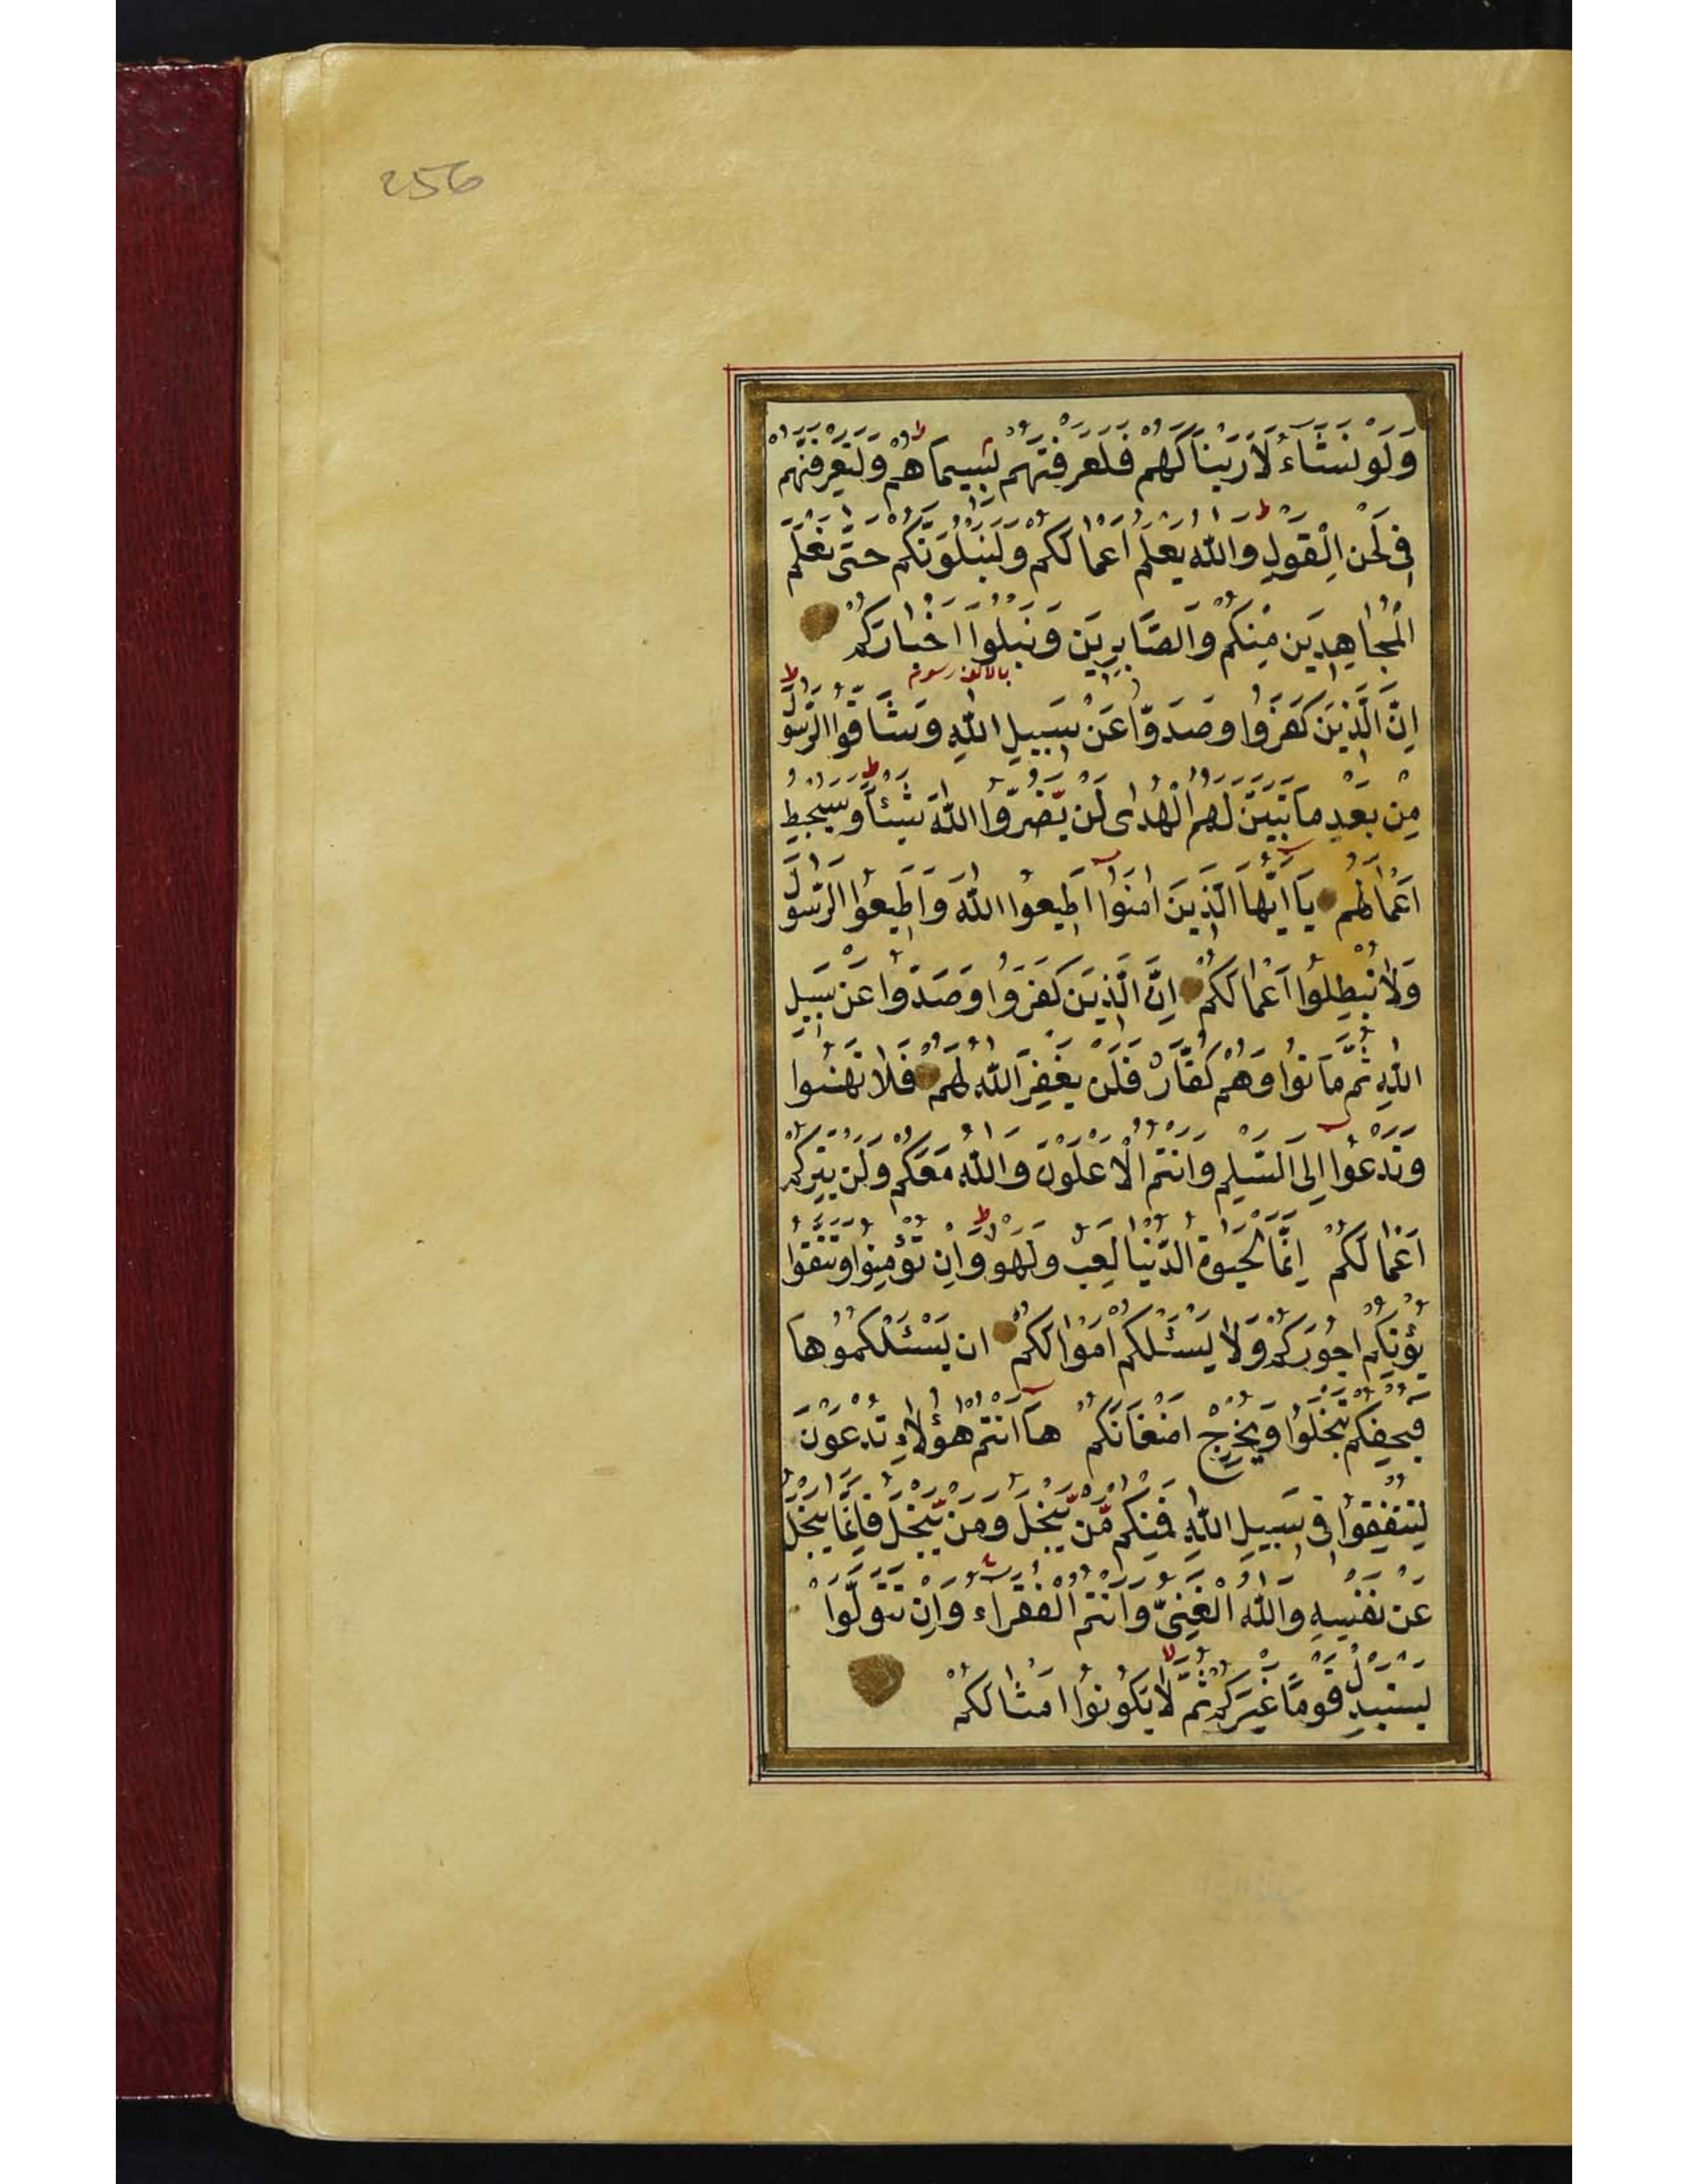 256
وَلَوْ نَشَاءُ لَاَرَيْنَاكَهُمْ فَلَعَرَفْتَهُمْ بِسِيمَاهُمْ وَلَتَعْرِفَنَّهُمْ
فِى لَحْنِ الْقَوْلِ وَاللّٰهُ يَعْلَمُ اَعْمَالَكُمْ وَلَنَبْلُوَنَّكُمْ حَتّٰى نَعْلَمَ
الْمُجَاهِدِيَن مِنْكُمْ وَالصَّابِرِيَن وَنَبْلُوَا اَخْبَارَكُمْ
اِنَّ الَّذِيَن كَفَرُوا وَصَدُّوا عَنْ سَبِيلِ اللّٰهِ وَشَاقُّوا الرَّسُولَ
مِنْ بَعْدِ مَا تَبَيَّنَ لَهُمُ الْهُدٰى لَنْ يَّضُرُّوا اللّٰهَ شَيْئًا وَسَيُحْبِطُ
اَعْمَالَهُمْ يَا اَيُّهَا الَّذِينَ اٰمَنُوا اَطِيعُوا اللّٰهَ وَاَطِيعُوا الرَّسُولَ
وَلَا تُبْطِلُوا اَعْمَالَكُمْ اِنَّ الَّذِيَن كَفَرُوا وَصَدُّوا عَنْ سَبِيلِ
اللّٰهِ ثُمَّ مَاتُوا وَهُمْ كُفَّارٌ فَلَنْ يَغْفِرَ اللّٰهُ لَهُمْ فَلَا تَهِنُوا
وَتَدْعُوا اِلَى السَّلْمِ وَاَنْتُمُ الْاَعْلَوْنَ وَاللّٰهُ مَعَكُمْ وَلَنْ يَتِرَكُمْ
اَعْمَالَكُمْ اِنَّمَا الْحَيٰوةُ الدُّنْيَا لَعِبٌ وَلَهْوٌ وَاِنْ تُؤْمِنُوا وَتَتَّقُوا
يُؤْتِكُمْ اُجُورَكُمْ وَلَا يَسْئَلْكُمْ اَمْوَالَكُمْ اِنْ يَسْئَلْكُمُوهَا
فَيُحْفِكُمْ تَبْخَلُوا وَيُخْرِجْ اَضْغَانَكُمْ هَا اَنْتُمْ هٰؤُلَاءِ تُدْعَوْنَ
لِتُنْفِقُوا فِى سَبِيلِ اللّٰهِ فَمِنْكُمْ مَّنْ يَّبْخَلُ وَمَنْ يَّبْخَلْ فَاِنَّمَا يَبْخَلُ
عَنْ نَفْسِهِ وَاللّٰهُ الْغَنِىُّ وَاَنْتُمُ الْفُقَرَاءُ وَاِنْ تَتَوَلَّوْا
يَسْتَبْدِلْ قَوْمًا غَيْرَكُمْ ثُمَّ لَا يَكُونُوا اَمْثَالَكُمْ